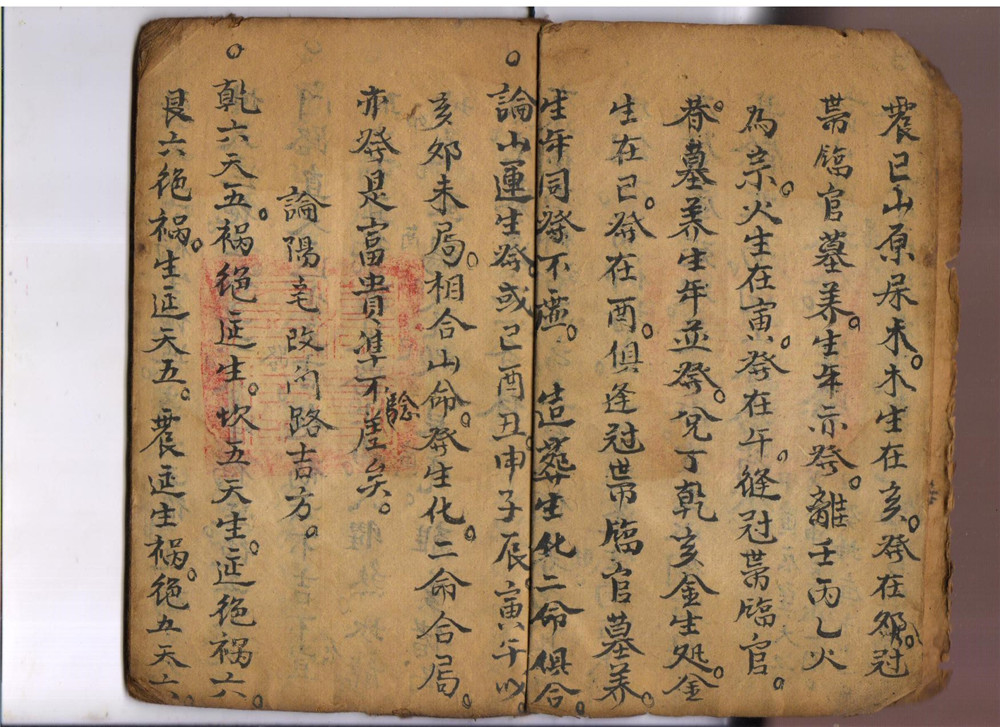 震巳山原屎木。木生在亥。癸在夘。冠
帶臨官墓养。生年亦癸。離壬丙乚火
為宗。火生在寅。癸在午。縫冠帶臨官。
春。墓养生年並癸。兌丁乾亥金生処。金
生在巳。癸在酉。俱逢冠帶臨官墓养。
生年同癸不    。造葬生化二命俱合。
論山運生癸。或巳酉丑申子辰寅午以
亥夘未局。相合山命。癸生化。二命合局。
亦癸是富貴準不  驗矣。
論陽宅改向路吉方。
乾六天五。禍絶延生。坎五天生。延绝禍六。
艮六绝禍。生延天五。震延生禍。绝五天六。